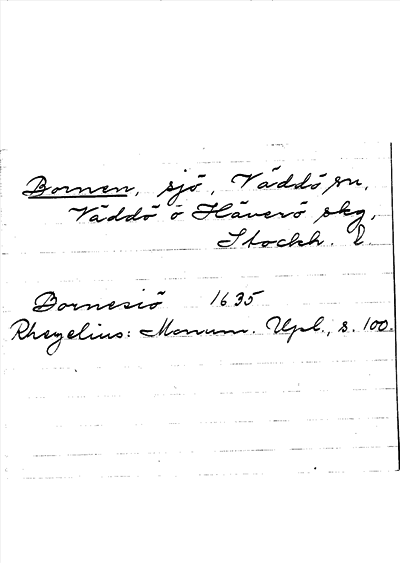 Bornen, sjö, Väddö sn,
Väddö o Häverö skg,
Stockh. l.
Bornesiö 1635
Rhezelius: Monum. Upl., s. 100.